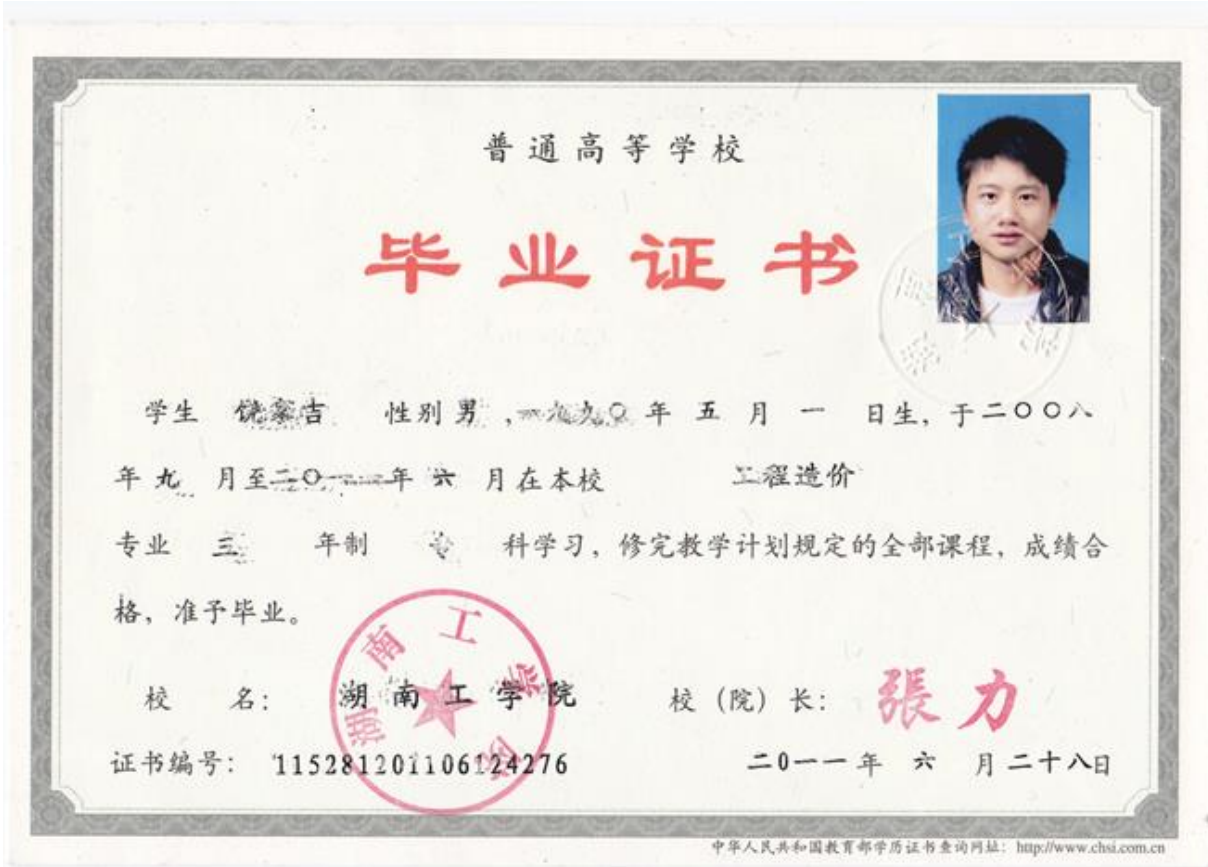 普通高等学校
毕业证书
学生 饶家吉 性别 男 ,一九九〇年 五 月 一 日生, 于二〇〇八
年 九 月至二〇一一年 六 月在本校 工程造价
专业 三 年制 专 科学习, 修完教学计划规定的全部课程, 成绩合
格, 准予毕业。
校 名: 湖南工学院 校 (院) 长: 張力
证书编号: 115281201106124276 二0一一年 六 月二十八日
湖南工学院
中华人民共和国教育部学历证书查询网址: http://www.chsi.com.cn